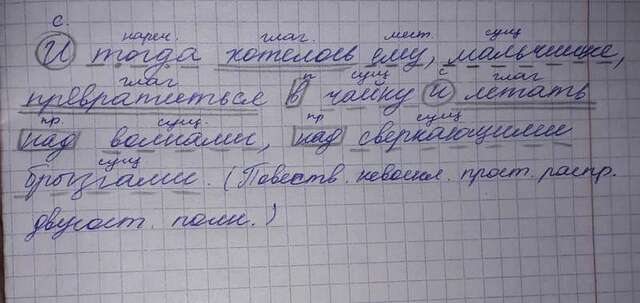 с. нареч. глаг. мест. сущ
И тогда хотелось ему, мальчишке,
глаг п сущ с глаг
превратиться в чайку и летать
пр. сущ. пр сущ
над волнами, над сверкающими
сущ
брызгами. (Повеств. невоскл. прост. распр.
двусост. полн.)